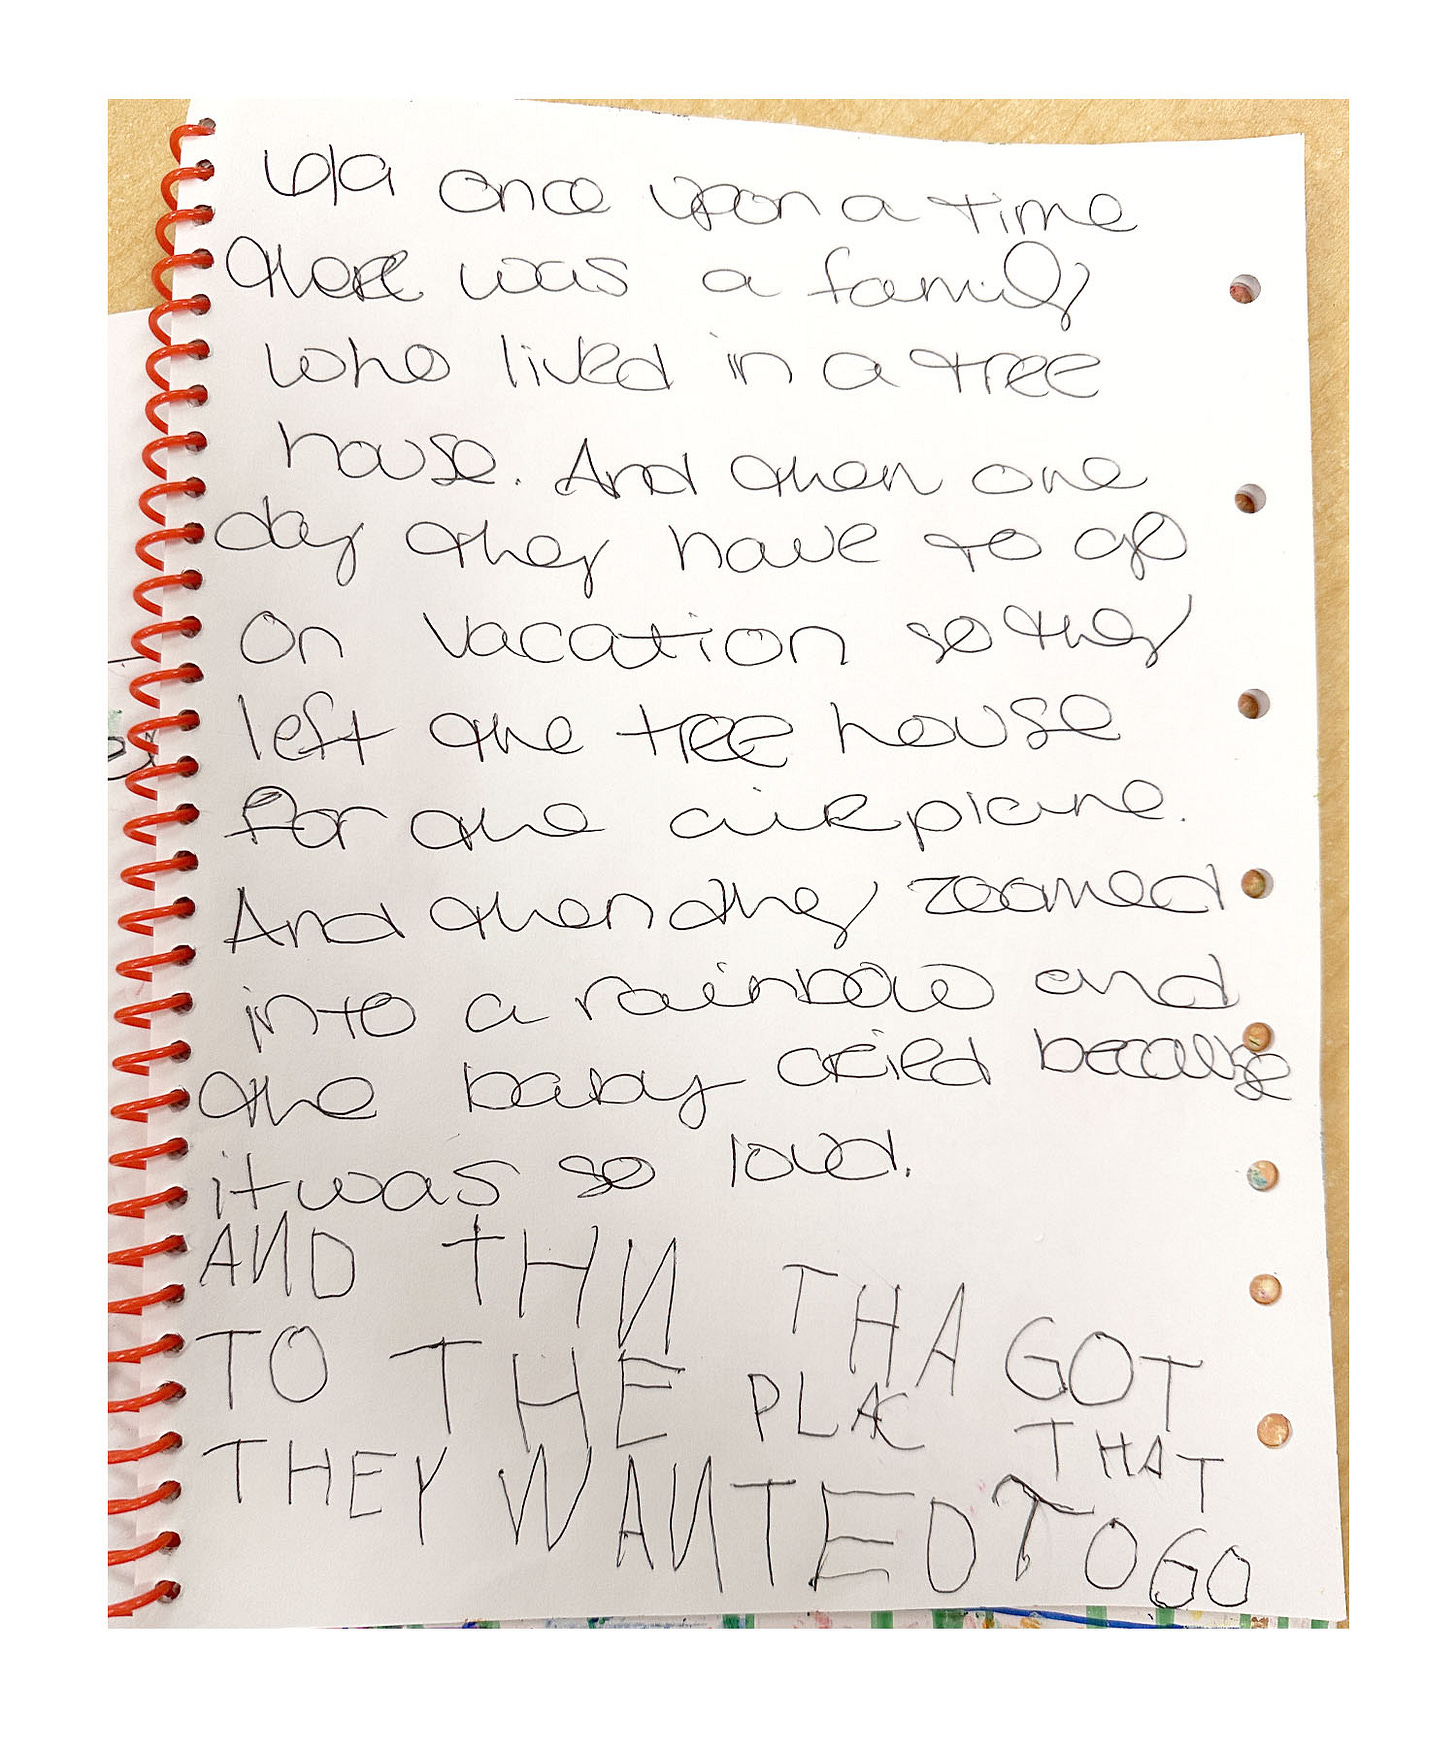 6/9 once upon a time
there was a family
who lived in a tree
house. And then one
day they have to go
on vacation so they
left the tree house
for the airplane.
And then they zoomed
into a rainbow and
the baby cried because
it was so loud.
AND THN THA GOT
TO THE PLAC THAT
THEY WANTED TO GO